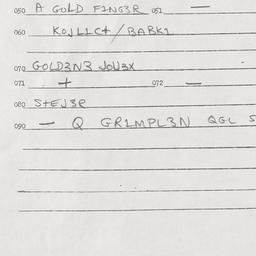 050 A GOLD F1NG3R 051 —
060 KOJL1C+/BABK1
070 GOLD3N3 JOU3X
071 + 072 —
080 S+EJ3R
090 — Q GR1MPL3N QGL S